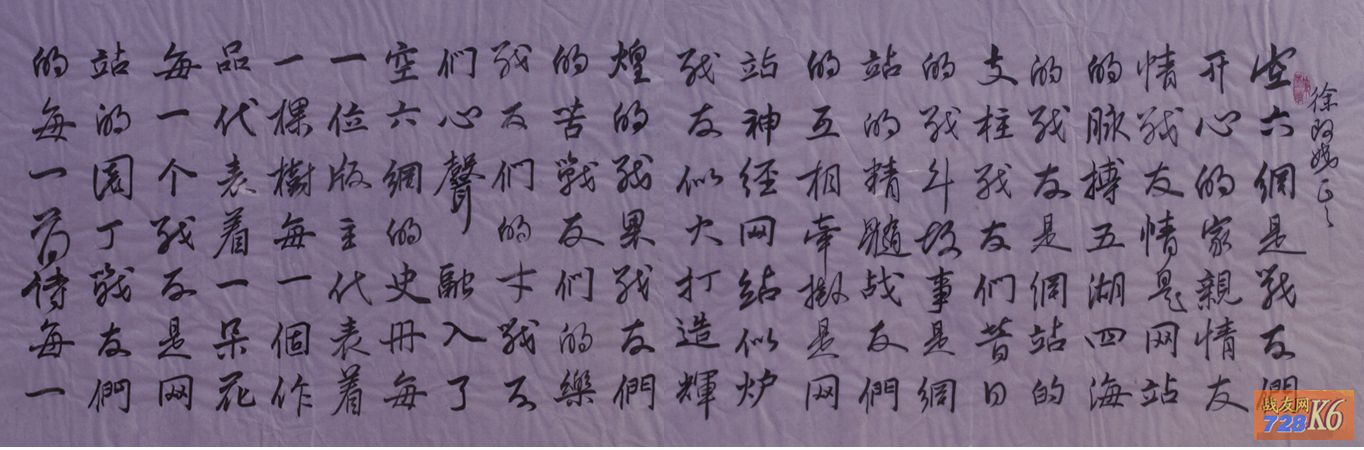 徐
空六網是戰友們
开心的家親情友
情战友情是网站
的脉搏五湖四海
的战友是網站的
支柱战友们昔日
的战斗故事是網
站的精髓战友們
的互相牵掛是网
站神經网站似炉
战友似火打造輝
煌的战果战友們
的苦戰友们的樂
战友们的才戰友
们心聲融入了
空六網的史冊每
一位版主代表着
一棵樹每一個作
品代表着一朵花
每一个战友是网
站的園丁戰友們
的每一首詩每一
战友网
728 K6